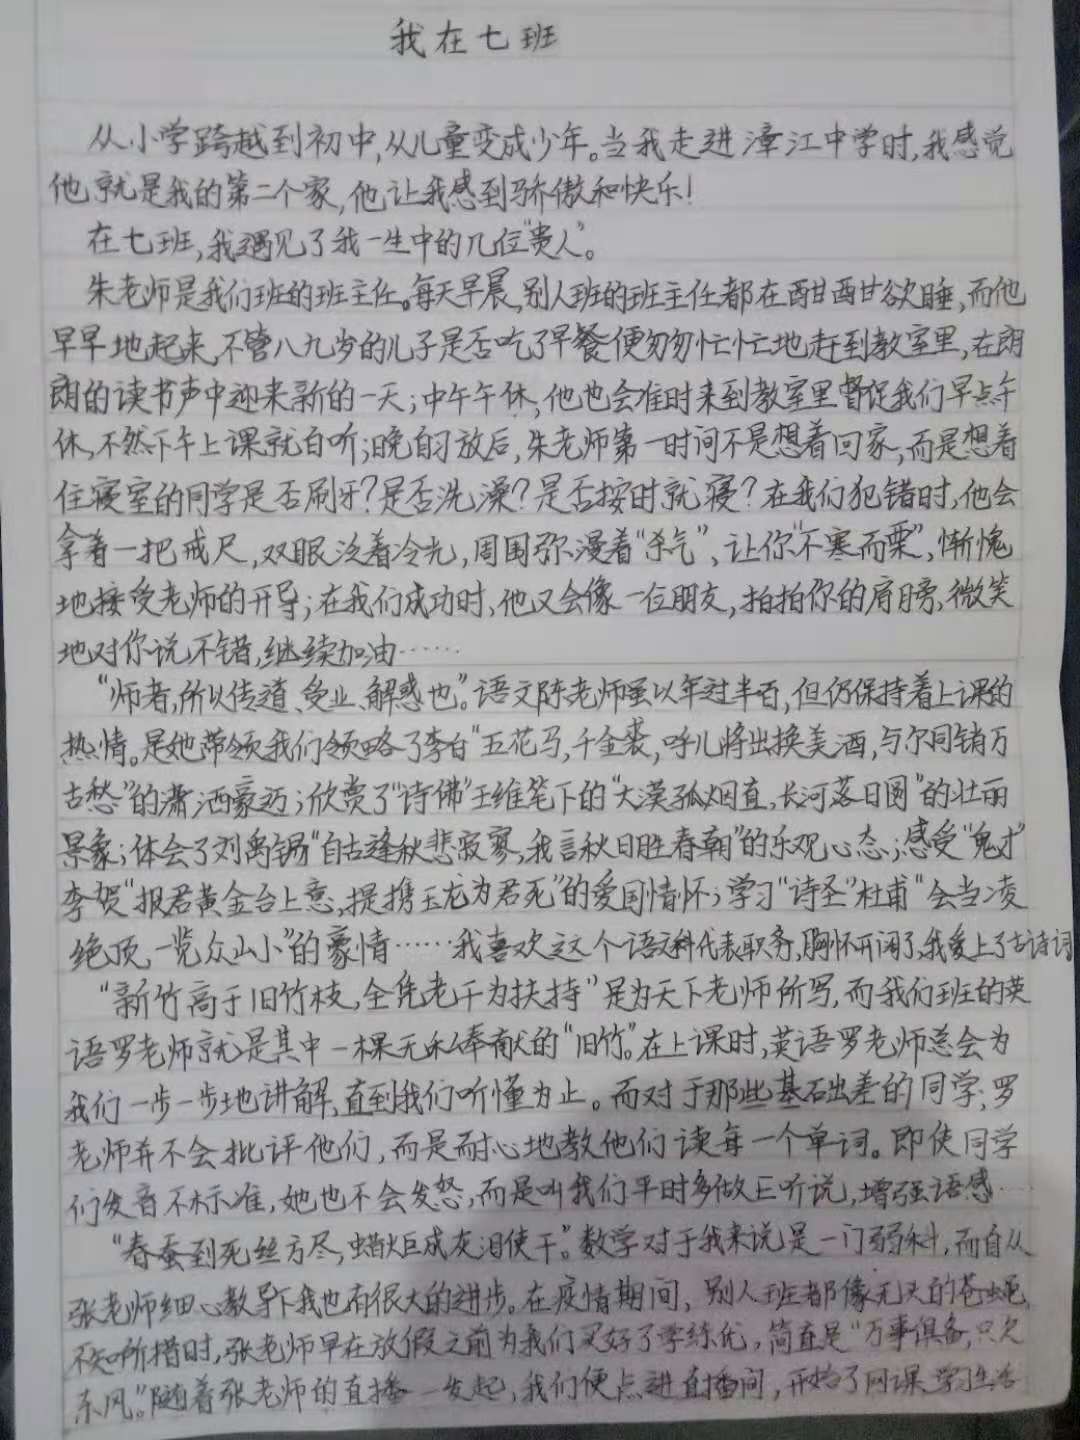 我在七班
从小学跨越到初中,从儿童变成少年。当我走进漳江中学时,我感觉
他就是我的第二个家,他让我感到骄傲和快乐!
在七班,我遇见了我一生中的几位“贵人”。
朱老师是我们班的班主任。每天早晨,别人班的班主任都在酣酣欲睡,而他
早早地起来,不管八九岁的儿子是否吃了早餐便匆匆忙忙地赶到教室里,在朗
朗的读书声中迎来新的一天;中午午休,他也会准时来到教室里督促我们早点午
休,不然下午上课就白听;晚自习放后,朱老师第一时间不是想着回家,而是想着
住寝室的同学是否刷牙?是否洗澡?是否按时就寝?在我们犯错时,他会
拿着一把戒尺,双眼泛着冷光,周围弥漫着“杀气”,让你“不寒而栗”,惭愧
地接受老师的开导;在我们成功时,他又会像一位朋友,拍拍你的肩膀,微笑
地对你说不错,继续加油……
“师者,所以传道、受业、解惑也。”语文陈老师虽以年过半百,但仍保持着上课的
热情。是她带领我们领略了李白“五花马,千金裘,呼儿将出换美酒,与尔同销万
古愁”的潇洒豪迈;欣赏了“诗佛”王维笔下的“大漠孤烟直,长河落日圆”的壮丽
景象;体会了刘禹锡“自古逢秋悲寂寥,我言秋日胜春朝”的乐观心态;感受“鬼才”
李贺“报君黄金台上意,提携玉龙为君死”的爱国情怀;学习“诗圣”杜甫“会当凌
绝顶,一览众山小”的豪情……我喜欢这个语文科代表职务,胸怀开阔了,我爱上了古诗词
“新竹高于旧竹枝,全凭老干为扶持”是为天下老师所写,而我们班的英
语罗老师就是其中一棵无私奉献的“旧竹”。在上课时,英语罗老师总会为
我们一步一步地讲解,直到我们听懂为止。而对于那些基础差的同学,罗
老师并不会批评他们,而是耐心地教他们读每一个单词。即使同学
们发音不标准,她也不会发怒,而是叫我们平时多做巨听说,增强语感……
“春蚕到死丝方尽,蜡炬成灰泪使干。”数学对于我来说是一门弱科,而自从
张老师细心教导下我也有很大的进步。在疫情期间,别人班都像无头的苍蝇,
不知所措时,张老师早在放假之前为我们买好了学练优,简直是“万事俱备,只欠
东风。”随着张老师的直播一发起,我们便点进直播间,开始了网课学习生活